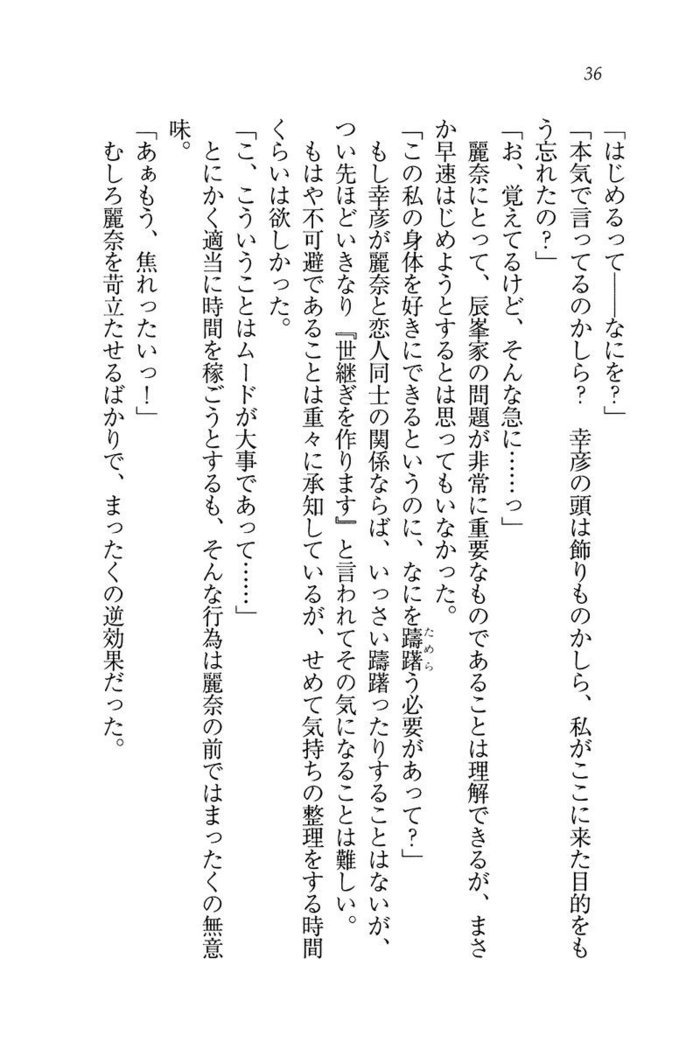 36
「はじめるって――なにを?」
「本気で言ってるのかしら? 幸彦の頭は飾りものかしら、私がここに来た目的をも
う忘れたの?」
「お、覚えてるけど、そんな急に……っ」
麗奈にとって、辰峯家の問題が非常に重要なものであることは理解できるが、まさ
か早速はじめようとするとは思ってもいなかった。
「この私の身体を好きにできるというのに、なにを躊躇う必要があって?」
ためら
もし幸彦が麗奈と恋人同士の関係ならば、いっさい躊躇ったりすることはないが、
つい先ほどいきなり『世継ぎを作ります』と言われてその気になることは難しい。
もはや不可避であることは重々に承知しているが、せめて気持ちの整理をする時間
くらいは欲しかった。
「こ、こういうことはムードが大事であって……」
とにかく適当に時間を稼ごうとするも、そんな行為は麗奈の前ではまったくの無意
味。
「あぁもう、焦れったいっ!」
むしろ麗奈を苛立たせるばかりで、まったくの逆効果だった。